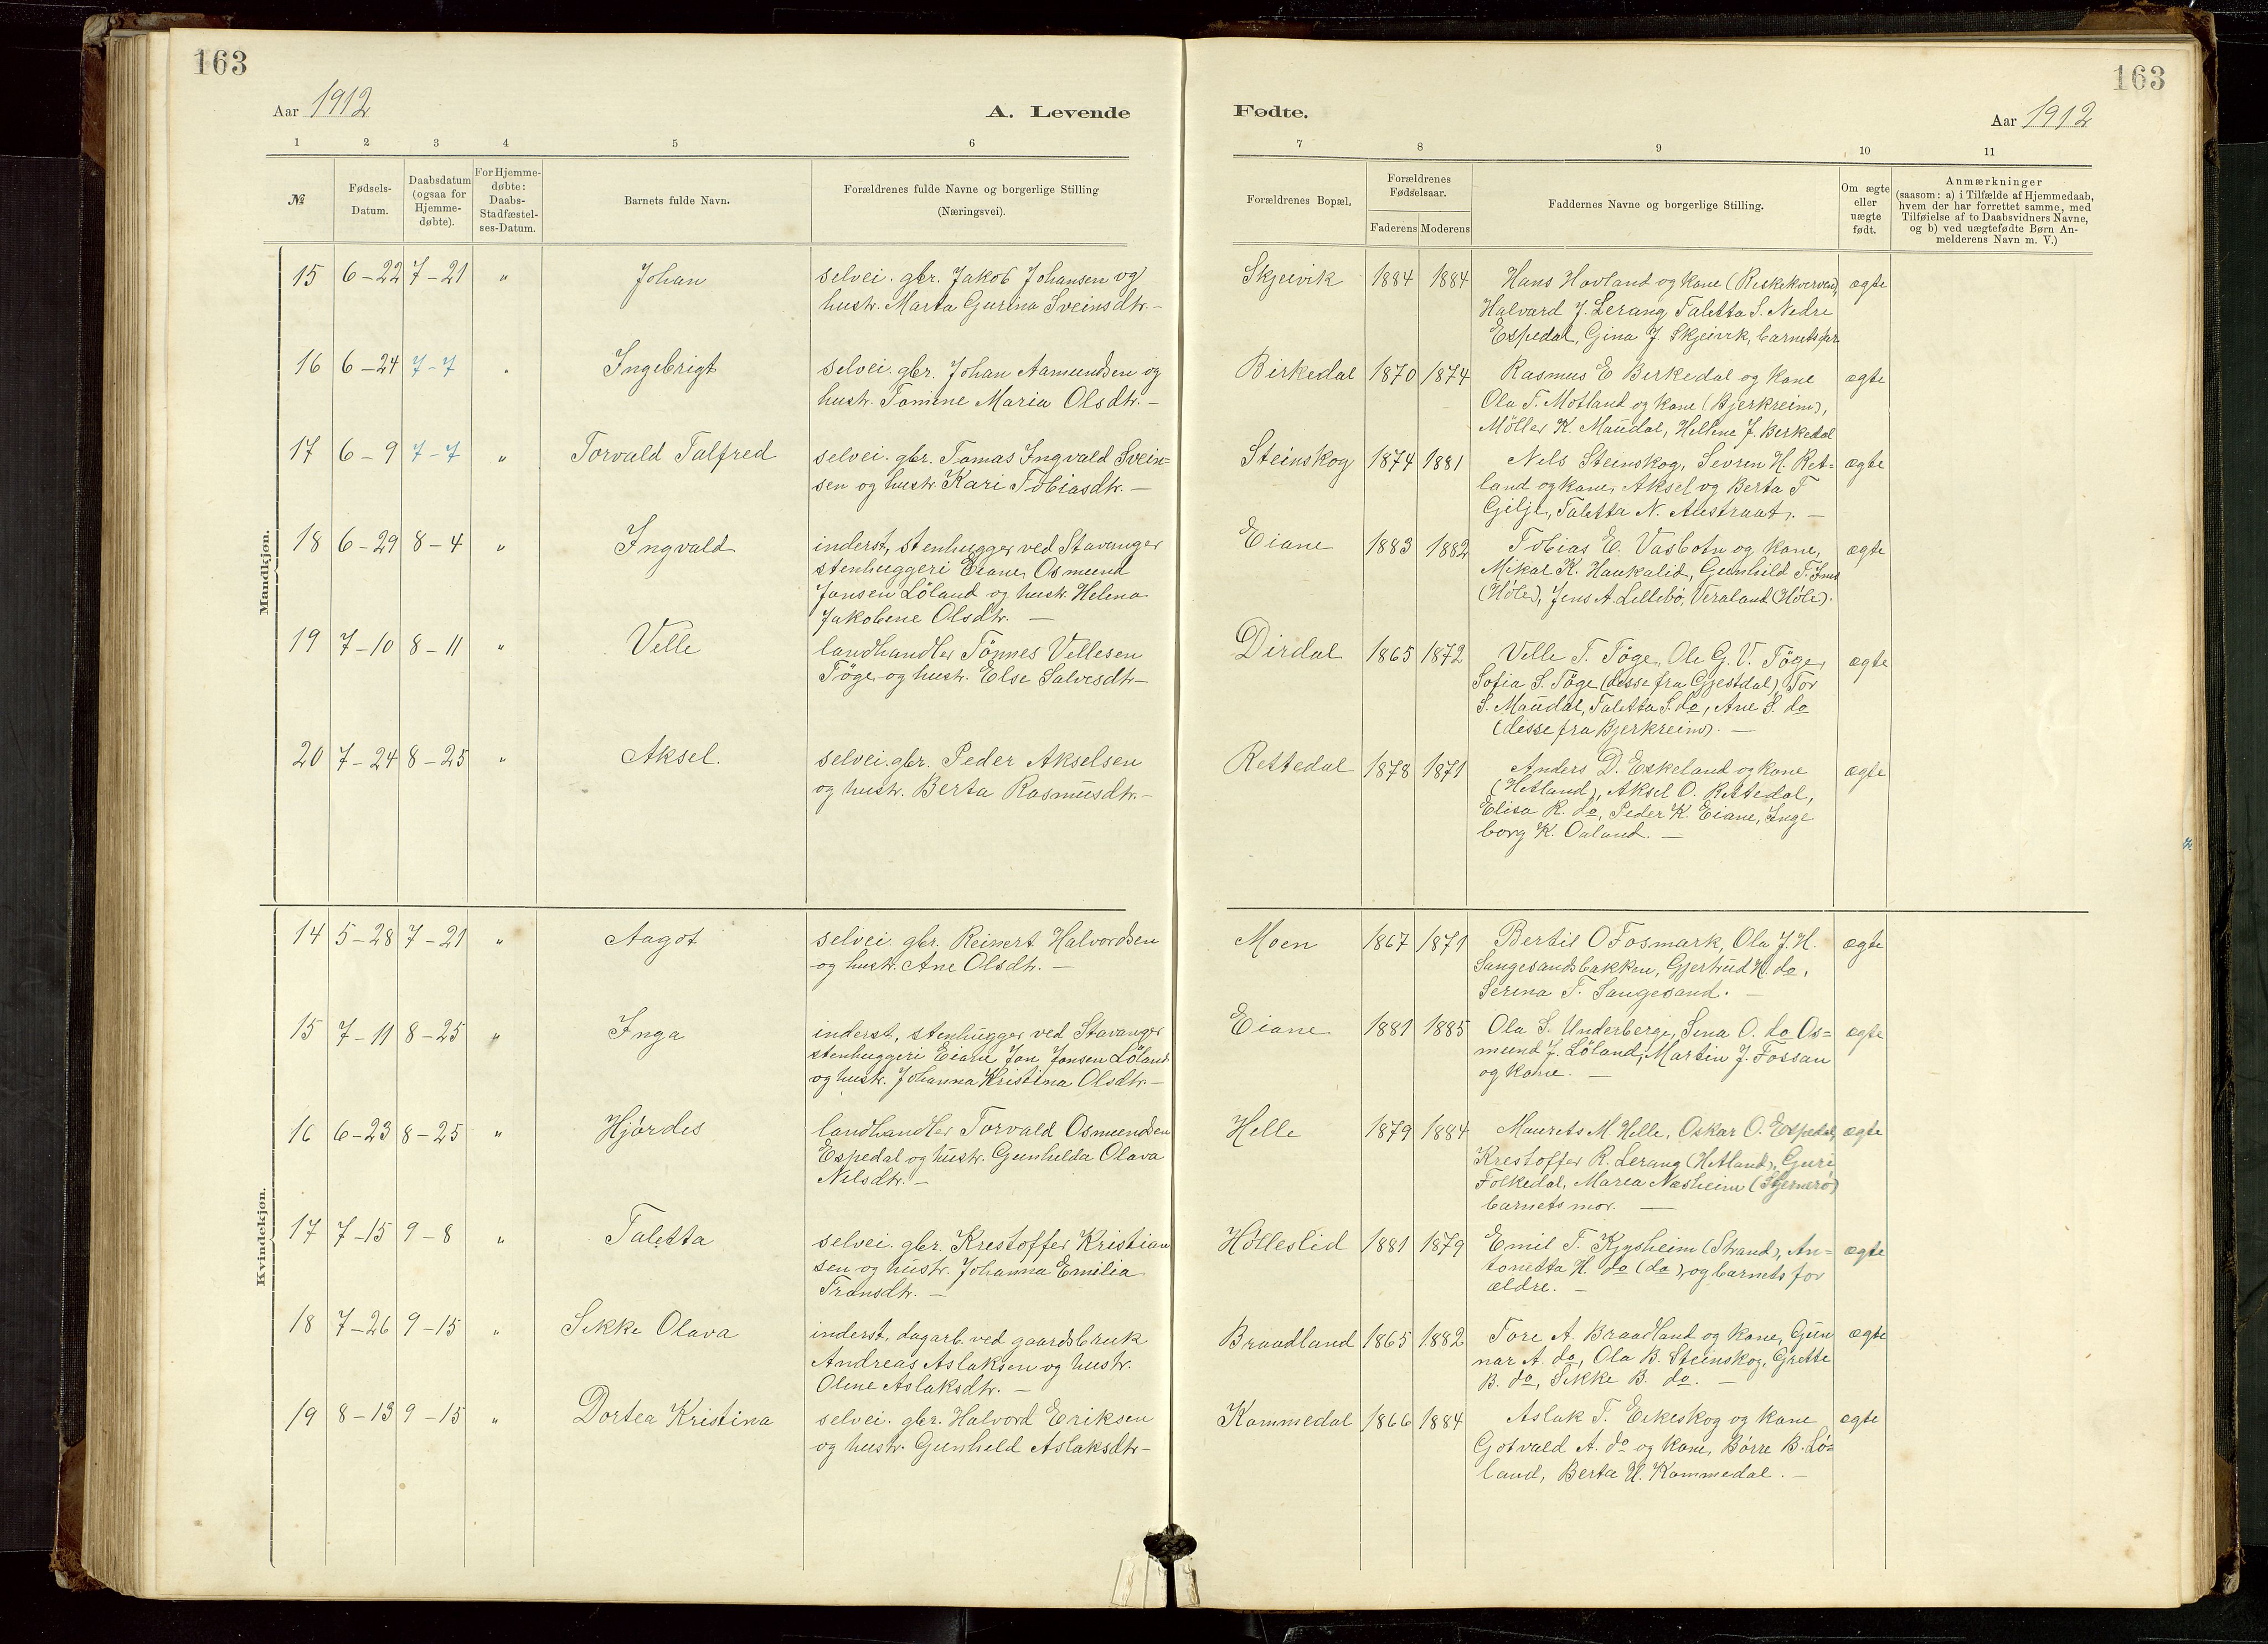 163
163
Aar 1912
A. Levende
Fødte.
Aar 1912
1 2 3 4 5 6
7 8 9 10 11
№
Fødsels-
Datum.
Daabsdatum
(ogsaa for
Hjemme-
døbte).
For Hjemme-
døbte:
Daabs-
Stadfæstel-
ses-Datum.
Barnets fulde Navn.
Forældrenes fulde Navne og borgerlige Stilling
(Næringsvei).
Forældrenes Bopæl.
Forældrenes
Fødselsaar.
Faderens Moderens
Faddernes Navne og borgerlige Stilling.
Om ægte
eller
uægte
født.
Anmærkninger
(saasom: a) i Tilfælde af Hjemmedaab,
hvem der har forrettet samme, med
Tilføielse af to Daabsvidners Navne,
og b) ved uægtefødte Børn An-
melderens Navn m. V.)
Mandkjøn.
15 6-22 7-21 " Johan
selvei. gbr. Jakob Johansen og
hustr. Marta Gurina Sveinsdtr. -
Skjeivik 1884 1884
Hans Hovland og kone (Reskekverven),
Halvard J. Lerang Taletta S. Nedre
Espedal, Gina J. Skjeivik, barnets far
ægte
16 6-24 7-7 " Ingebrigt
selvei. gbr. Johan Aamundsen og
hustr. Tomine Maria Olsdtr. -
Birkedal 1870 1874
Rasmus E Birkedal og kone
Ola T. Motland og kone (Bjerkreim),
Möller K. Maudal, Hellene J. Berkedal
ægte
17 6-9 7-7 " Torvald Talfred
selvei. gbr. Tomas Ingvald Svein=
sen og hustr. Kari Tobiasdtr. -
Steinskog 1874 1881
Nils Steinskog, Sevren H. Ret=
land og kone, Aksel og Berta T
Gilje, Taletta N. Austraat. -
ægte
18 6-29 8-4 " Ingvald
inderst, stenhugger ved Stavanger
stenhuggeri Eiane, Osmund
Jansen Löland og hustr. Helena
Jakobene Olsdtr. -
Eiane 1883 1882
Tobias E. Vasbotn og kone,
Mikal K. Haukalid, Gunhild T. Ims
(Höle), Jens A. Lillebö, Veraland (Höle).
ægte
19 7-10 8-11 " Velle
landhandler Tönnes Vellesen
Töge og hustr. Else Salvesdtr -
Dirdal 1865 1872
Velle T. Töge, Ole G. V. Töge,
Sofia S. Töge (disse fra Gjestdal), Tor
S. Maudal, Taletta S. do, Ane S. do
(disse fra Bjerkreim). -
ægte
20 7-24 8-25 " Aksel.
selvei. gbr. Peder Akselsen
og hustr. Berta Rasmusdtr. -
Rettedal 1878 1871
Anders D. Eskeland og kone
(Hetland), Aksel O. Rettedal,
Elisa R. do, Peder K. Eiane, Inge
borg K. Oaland. -
ægte
Kvindekjøn.
14 5-28 7-21 " Aagot
selvei. gbr. Reinert Halvordsen
og hustr. Ane Olsdtr. -
Moen 1867 1871
Bertil O Fosmark, Ola J. H.
Sangesandsbakken, Gjertrud H. do,
Serina T. Sangesand. -
ægte
15 7-11 8-25 " Inga
inderst, stenhugger ved Stavanger
stenhuggeri Eiane Jan Jansen Löland
og hustr. Johanna Kristina Olsdtr. -
Eiane 1881 1885
Ola S. Underberge, Sina O. do Os=
mund J. Löland, Martin J. Fossan
og kone. -
ægte
16 6-23 8-25 " Hjördes
landhandler Torvald Osmundsen
Espedal og hustr. Gunhilda Olava
Nilsdtr. -
Helle 1879 1884
Maurets M Helle, Oskar O. Espedal,
Krestoffer R. Lerang (Hetland), Guri
Folkedal, Maria Næsheim (Sjernerö)
barnets mor. -
ægte
17 7-15 9-8 " Taletta
selvei. gbr. Krestoffer Kristian
sen og hustr. Johanna Emilia
Transdtr. -
Hölleslid 1881 1879
Emil T. Kjysheim (Strand), An=
tonetta H. do (do), og barnets for
ældre. -
ægte
18 7-26 9-15 " Sikke Olava
inderst, dagarb. ved gaardsbruk
Andreas Aslaksen og hustr.
Oline Aslaksdtr. -
Braadland 1865 1882
Tore A. Braadland og kone, Gun
nar A. do, Ola B. Steinskog, Grette
B. do, Sikke B. do. -
ægte
19 8-13 9-15 " Dortea Kristina
selvei. gbr. Halvord Eriksen
og hustr. Gunhild Aslaksdtr -
Kommedal 1866 1884
Aslak T. Eikeskog og kone
Gotvald A. do og kone, Börre B. Lö=
land, Berta H. Kommedal. -
ægte